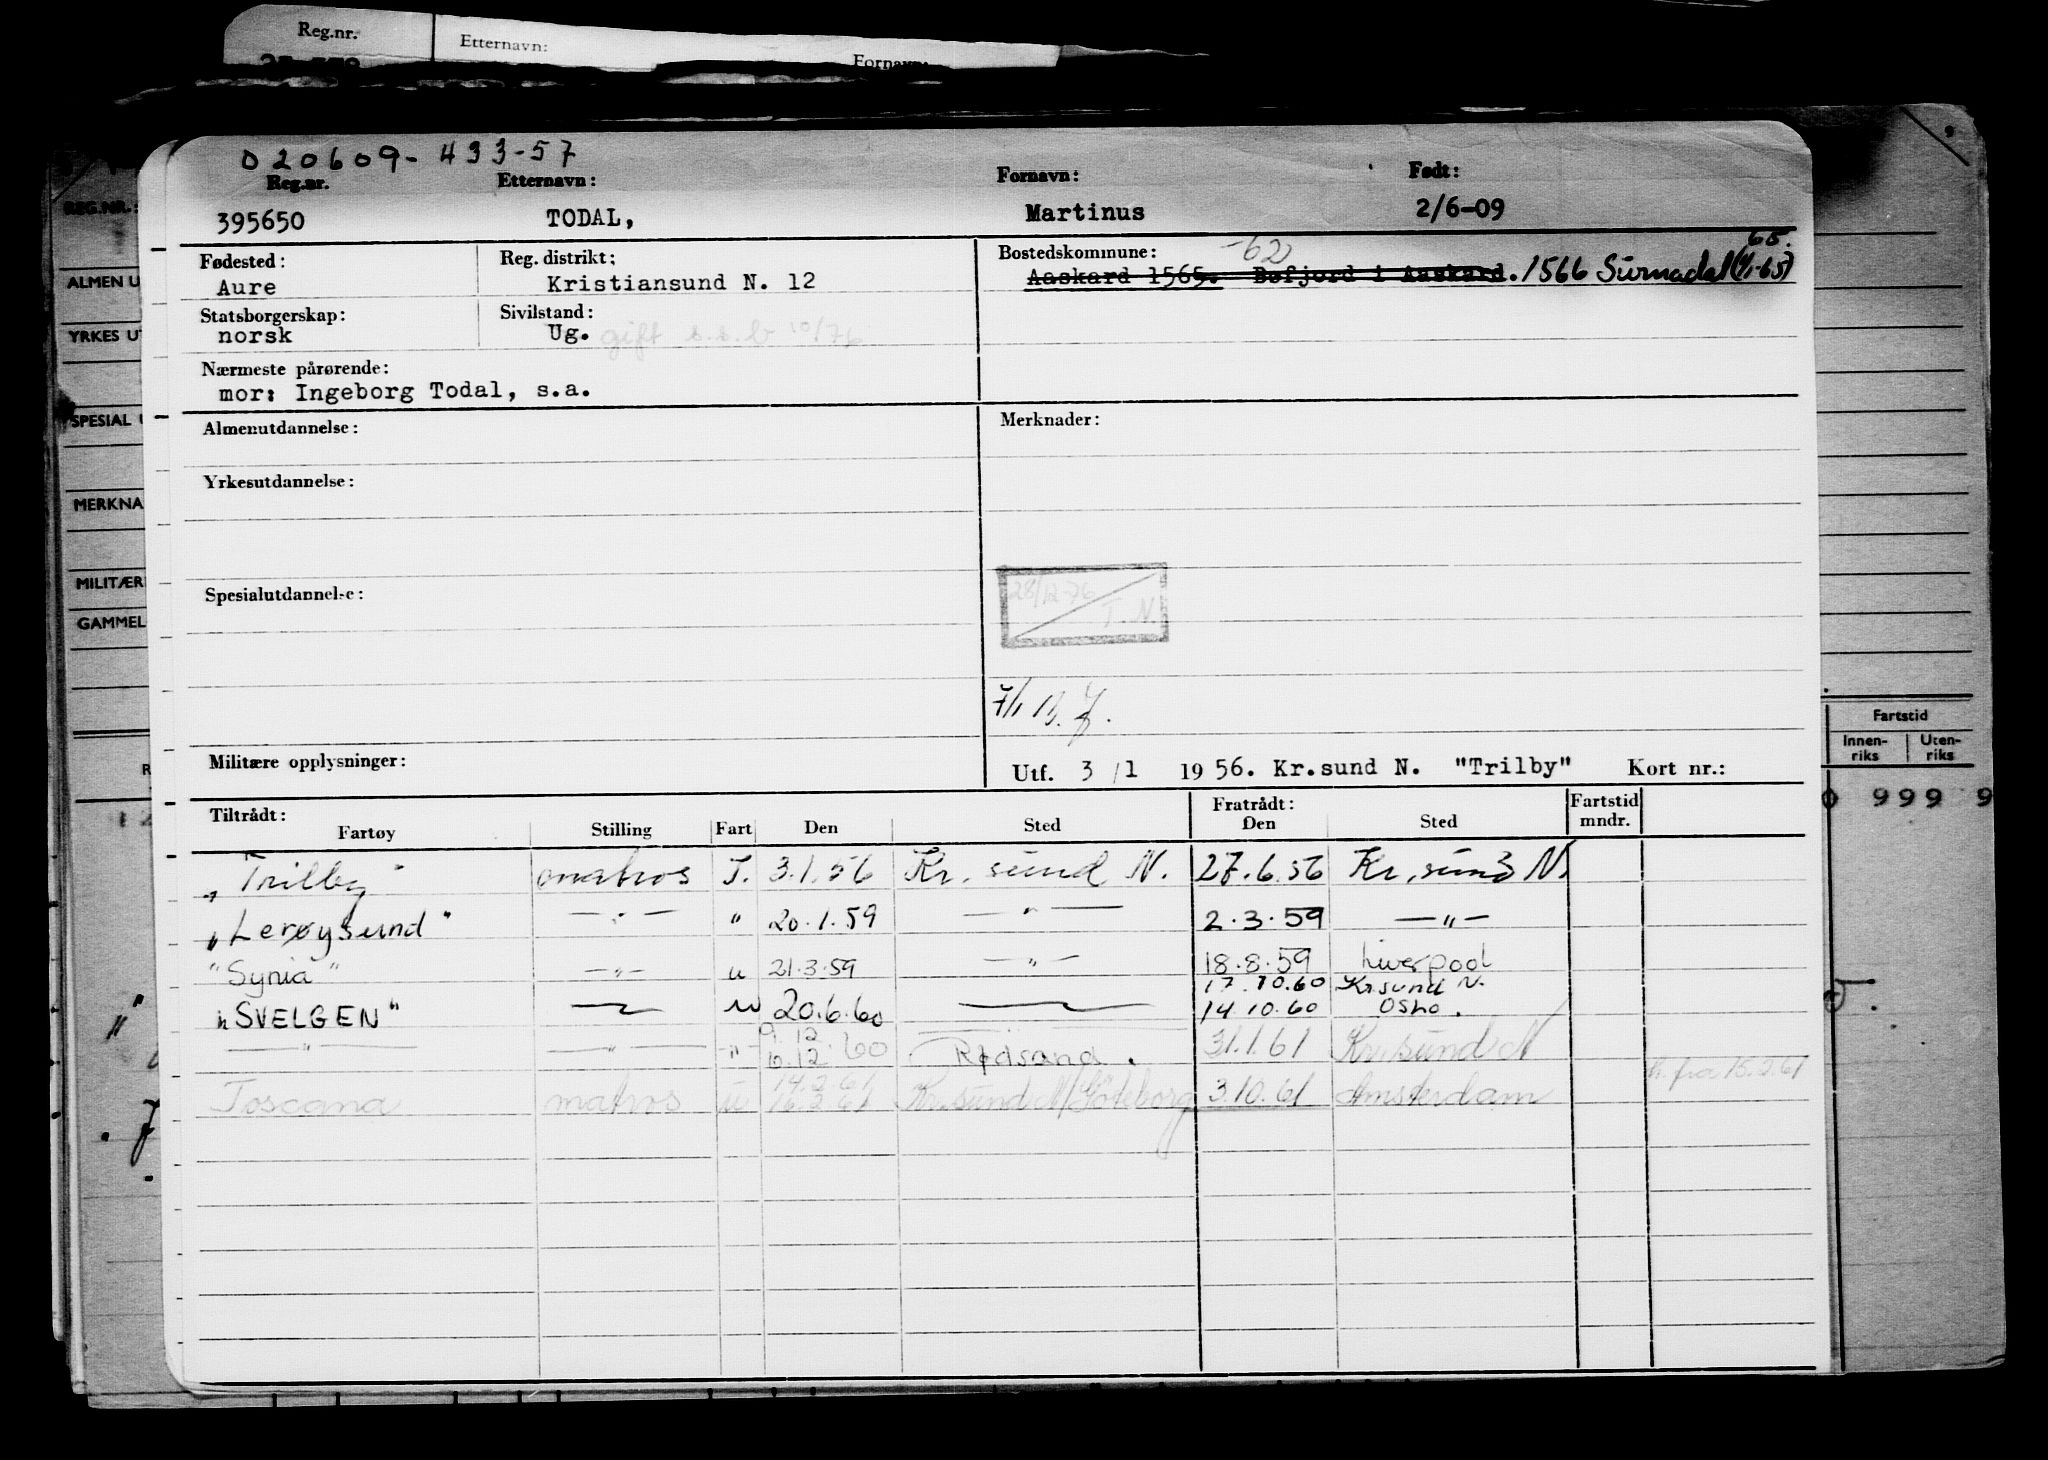 Reg.nr. Etternavn: Fornavn:
020609-433-57
Reg.nr. Etternavn: Fornavn: Født:
395650 TODAL, Martinus 2/6-09
Fødested: Reg. distrikt: Bostedskommune: -62 65.
Aure Kristiansund N. 12 Aaskard 1565. Bøfjord i Aaskard. 1566 Surnadal (1/1-65)
Statsborgerskap: Sivilstand:
norsk Ug. gift s.s.b 10/76
Nærmeste pårørende:
mor: Ingeborg Todal, s.a.
Almenutdannelse: Merknader:
Yrkesutdannelse:
Spesialutdannelse: 28/12-76 T.N.
Militære opplysninger: Utf. 3/1 1956. Kr.sund N. "Trilby" Kort nr.:
Tiltrådt: Fratrådt: Fartstid mndr.
Fartøy Stilling Fart Den Sted Den Sted
"Trilby" matros I. 3.1.56 Kr. sund N. 27.6.56 Kr. sund N.
"Lerøysund" — " — " 20.1.59 — " — 2.3.59 — " —
"Synia" — " — u 21.3.59 — " — 18.8.59 Liverpool
17.10.60 Kr.sund N.
"SVELGEN" u 20.6.60 14.10.60 Oslo.
— " — — " — - " - 9.12 10.12.60 Rødsand. 31.1.61 Kr.sund N
Toscana matros u 14.2.61 16.2.61 Kr.sund N/Göteborg 3.10.61 Amsterdam h. fra 15.2.61
REG.NR.:
ALMEN U
YRKES UT
SPESIAL U
MERKNA
MILITÆR
GAMMEL
Fartstid
Innen-riks Uten-riks
999 9